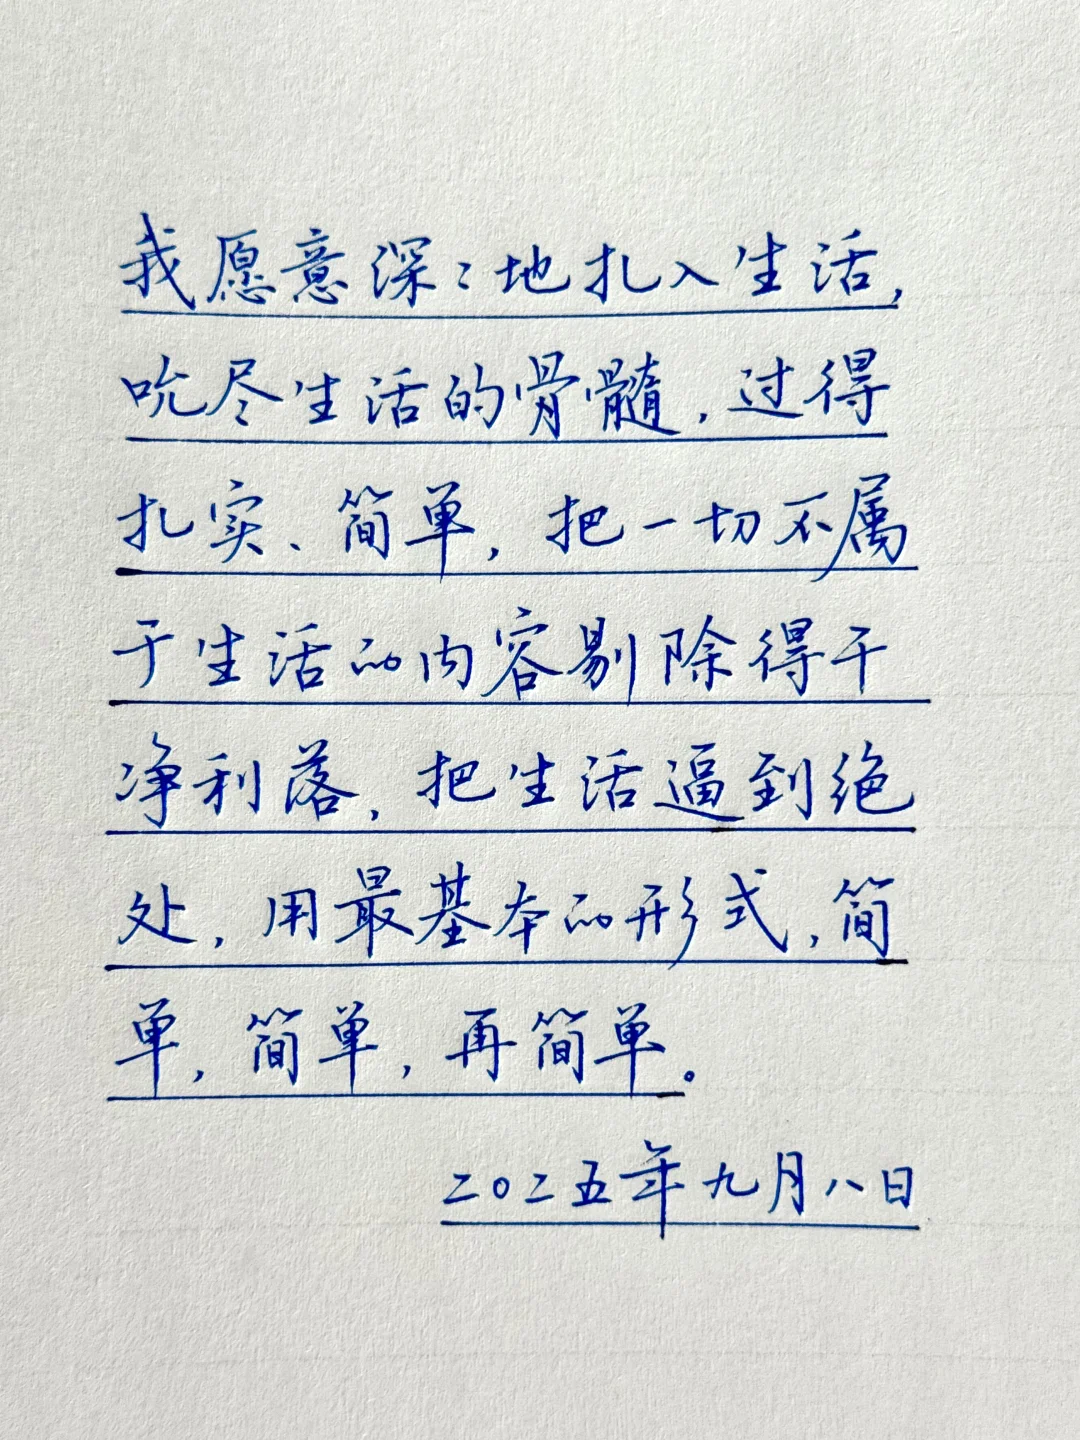 我愿意深深地扎入生活，
吮尽生活的骨髓，过得
扎实、简单，把一切不属
于生活的内容剔除得干
净利落，把生活逼到绝
处，用最基本的形式，简
单，简单，再简单。
二〇二五年九月八日